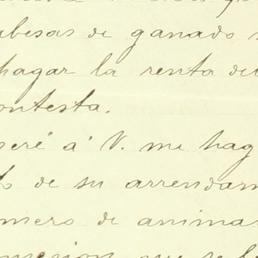 abesas de ganado
pagar la renta de
ontesta.
peré á V. me hag
o de su arrendam
mero de anima